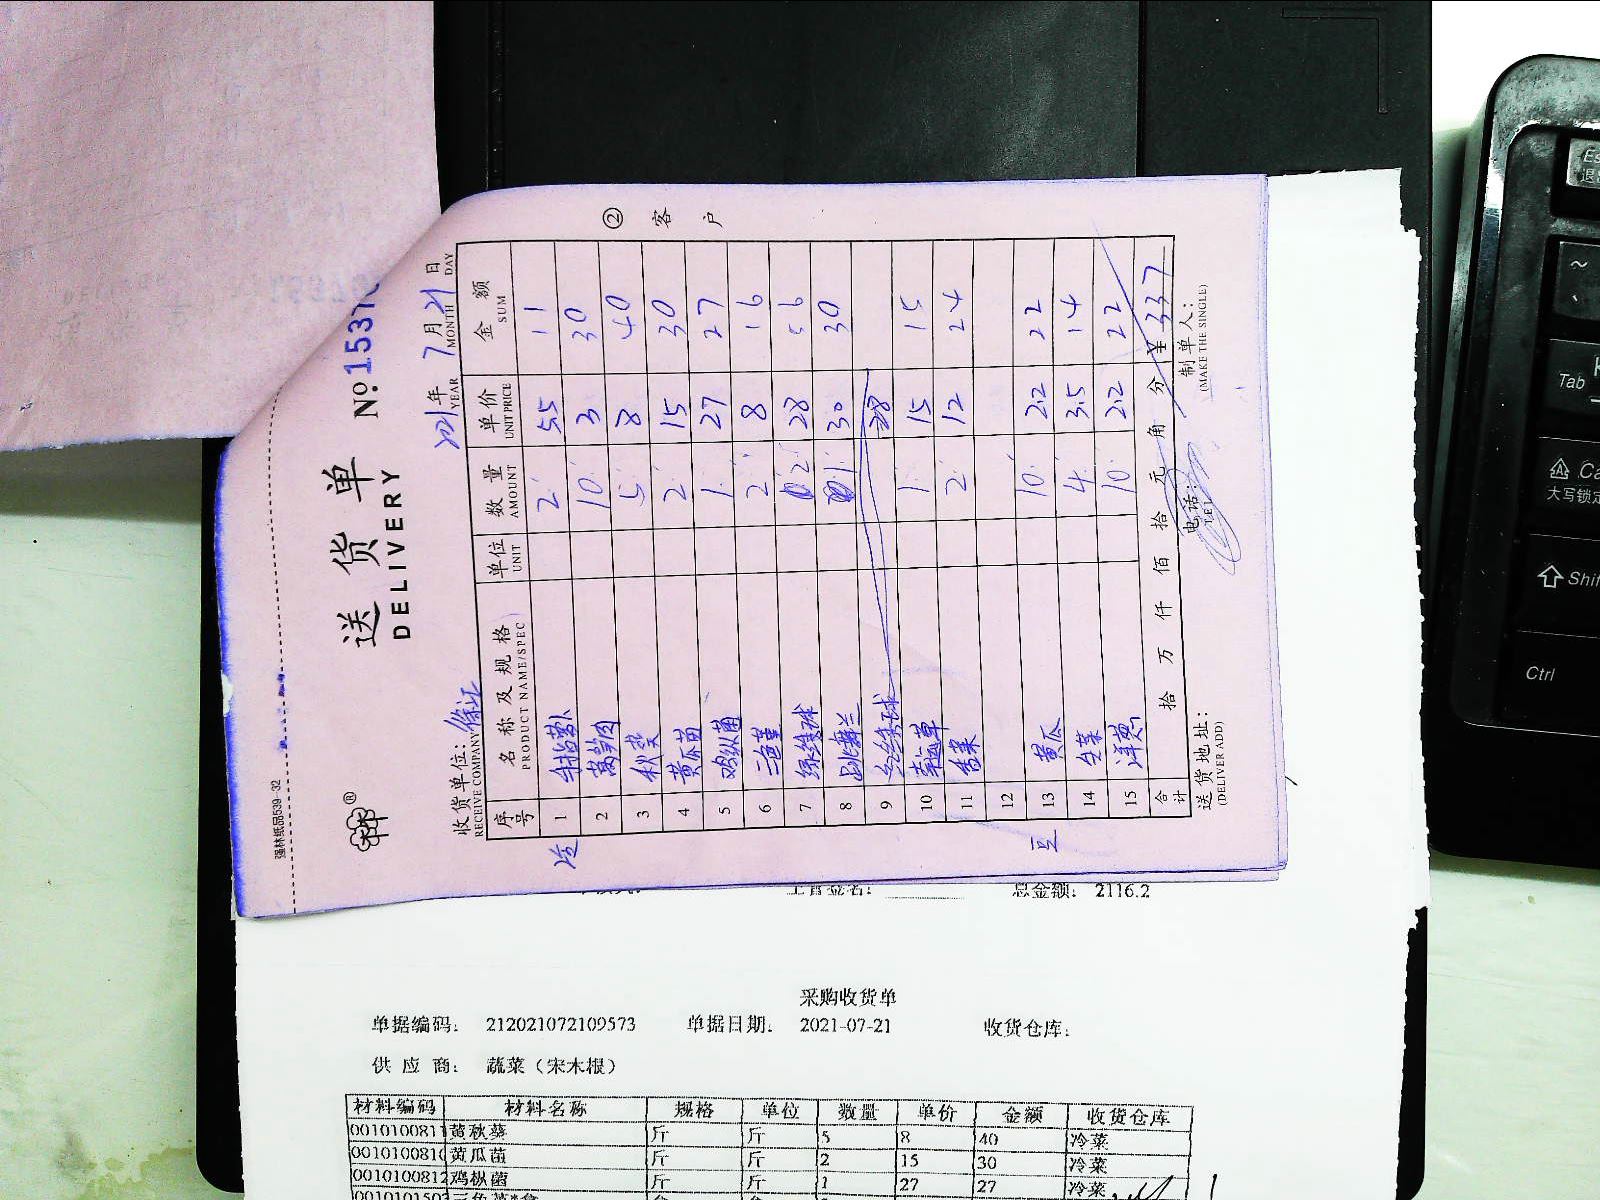 强林纸品539-32
送货单
DELIVERY
№ 1537
②客户
收货单位: 徐汇
RECEIVE COMPANY
2021年7月21日
YEAR MONTH DAY
序号 名称及规格 单位 数量 单价 金额
PRODUCT NAME/SPEC UNIT AMOUNT UNIT PRICE SUM
冷 1 手指萝卜 2 5.5 11
2 莴笋肉 10 3 30
3 秋葵 5 8 40
4 黄瓜苗 2 15 30
5 鸡枞菌 1 27 27
6 2 8 16
7 2 28 56
8 跳舞兰 1 30 30
9 28
10 1 15 15
11 2 12 24
12
豆 13 黄瓜 10 2.2 22
14 生菜 4 3.5 14
15 洋葱 10 2.2 22
合计 拾万仟佰拾元角分 ¥337
送货地址:
(DELIVER ADD)
电话:
TEL
制单人:
(MAKE THE SINGLE)
总金额: 2116.2
采购收货单
单据编码: 212021072109573 单据日期: 2021-07-21 收货仓库:
供应商: 蔬菜(宋木根)
材料编码 材料名称 规格 单位 数量 单价 金额 收货仓库
0010100811 黄秋葵 斤 斤 5 8 40 冷菜
001010081 黄瓜苗 斤 斤 2 15 30 冷菜
0010100812 鸡枞菌 斤 斤 1 27 27 冷菜
Tab
Caps
大写锁定
Shift
Ctrl